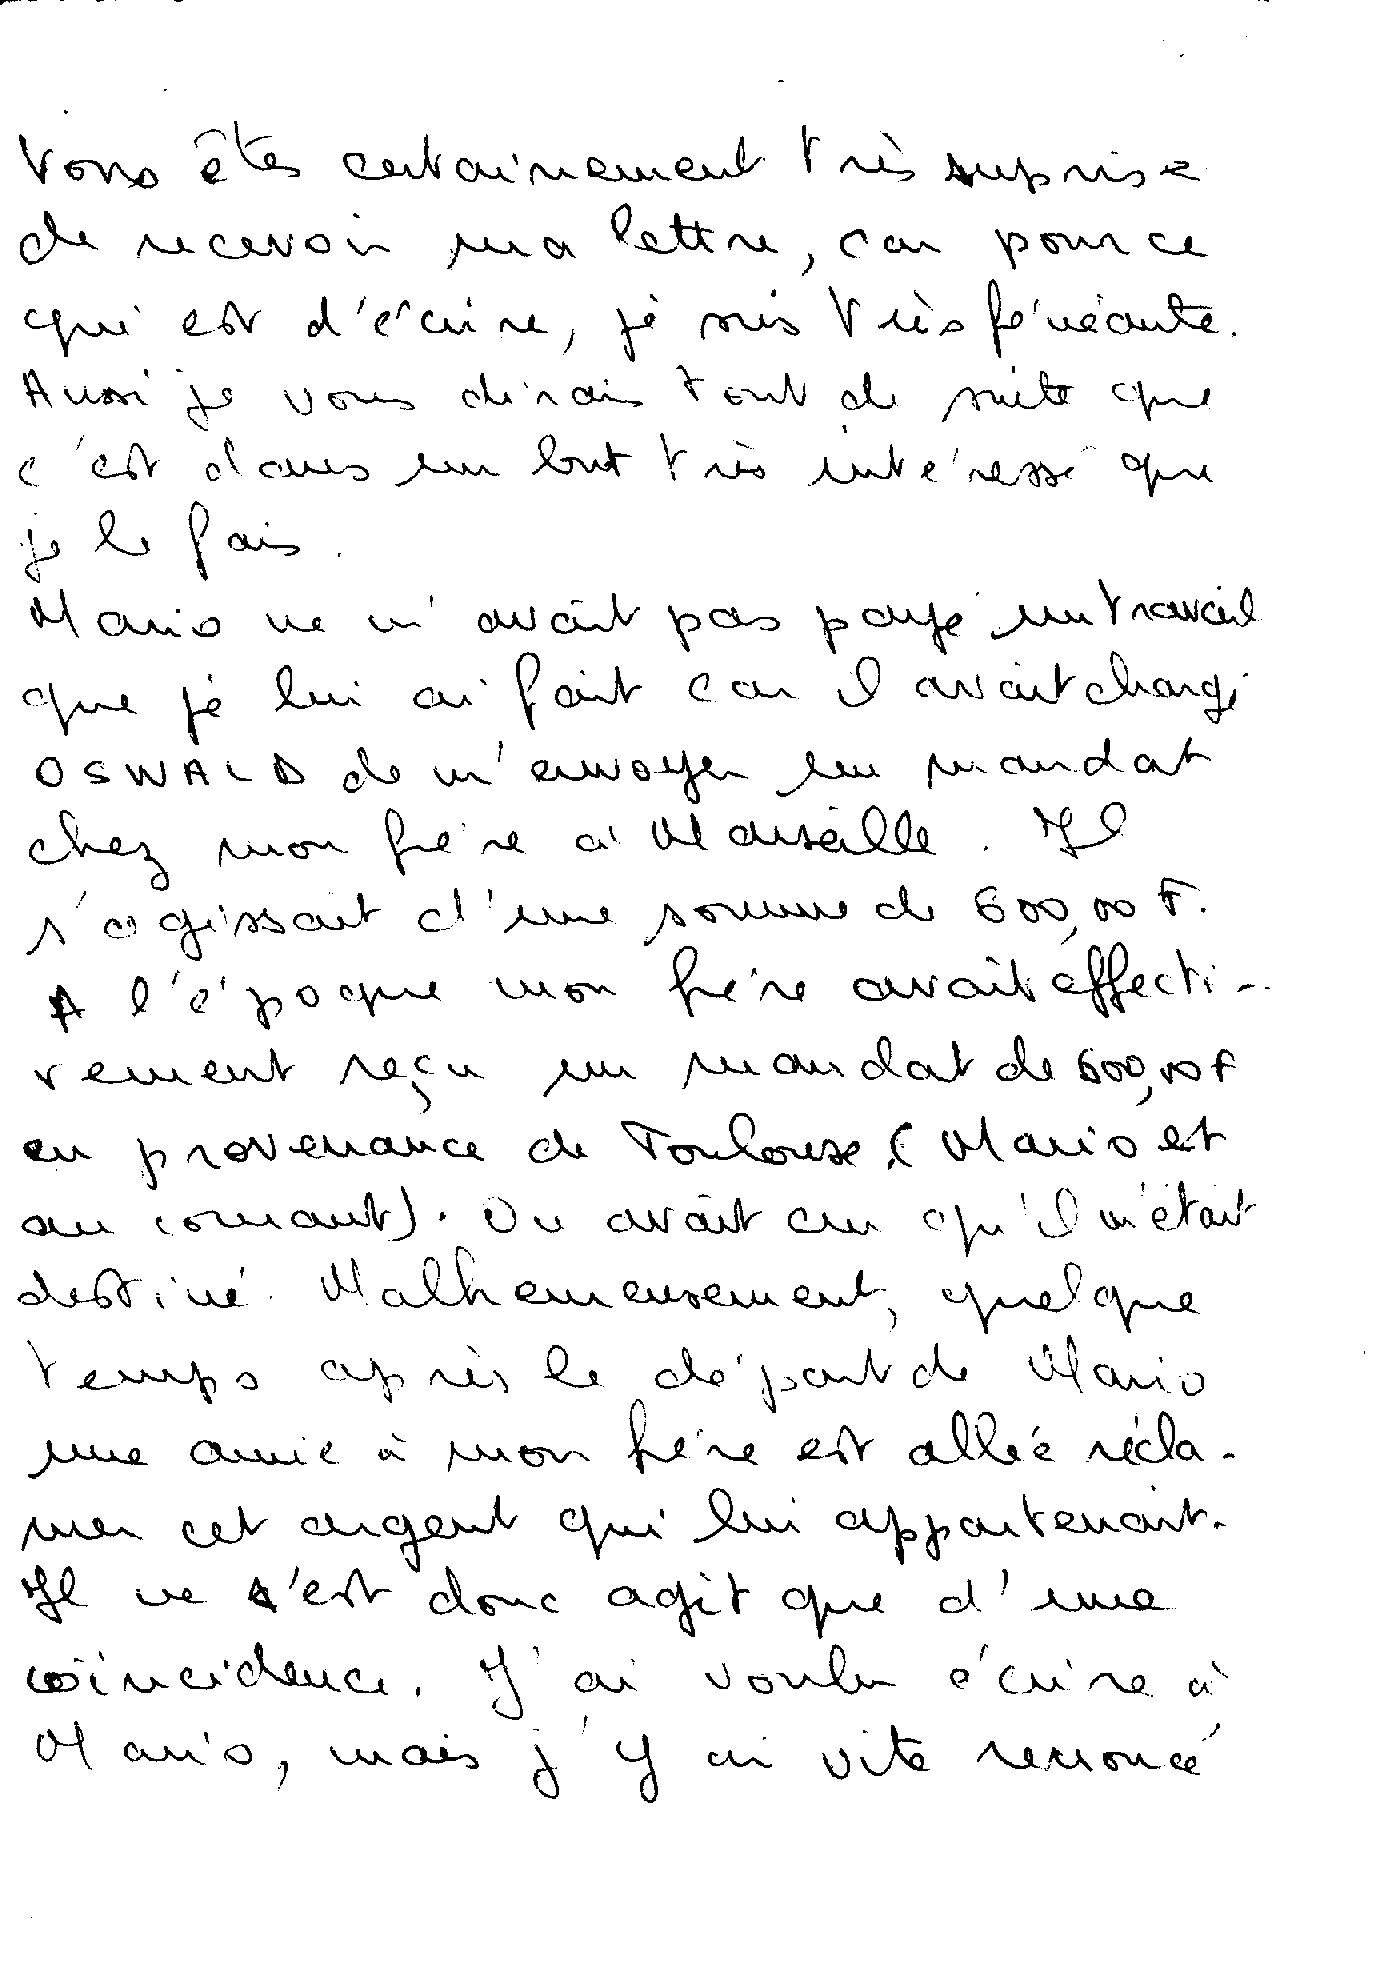 Vous êtes certainement très suprise
de recevoir ma lettre, car pour ce
qui est d'écrire, je suis très fénéante.
Aussi je vous dirais tout de suite que
c'est dans un but très intéressé que
je le fais.
Mario ne m'avait pas payé un travail
que je lui ai fait car il avait chargé
OSWALD de m'envoyer un mandat
chez mon frère à Marseille. Il
s'agissait d'une somme de 600,00 F.
A l'époque mon frère avait effecti-
vement reçu un mandat de 600,00 F
en provenance de Toulouse (Mario est
au courant). On avait cru qu'il m'était
destiné. Malheureusement, quelque
temps après le départ de Mario
une amie à mon frère est allée récla-
mer cet argent qui lui appartenait.
Il ne s'est donc agit que d'une
coïncidence. J'ai voulu écrire à
Mario, mais j'y ai vite renoncé